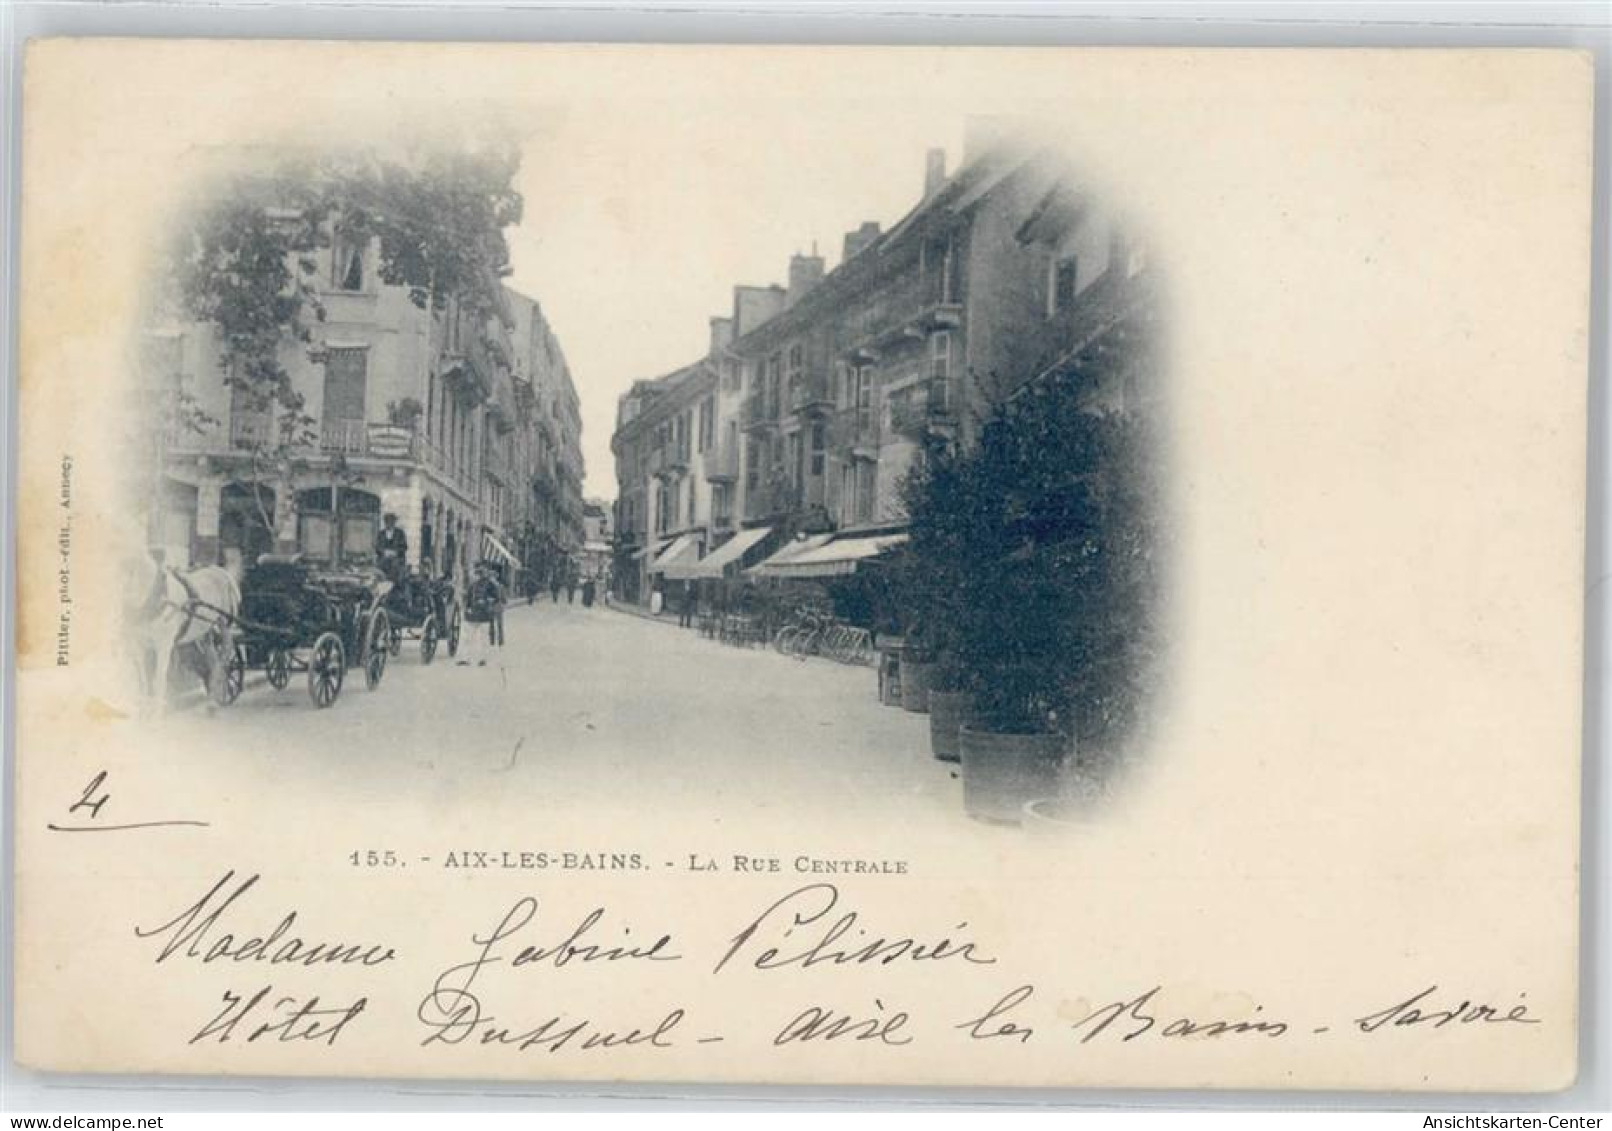 Pittier, phot.-édit., Annecy
4
155. - AIX-LES-BAINS. - LA RUE CENTRALE
Madame Gabrine Pélissièr
Hôtel Dussuel - Aix les Bains - Savoie
Ansichtskarten-Center